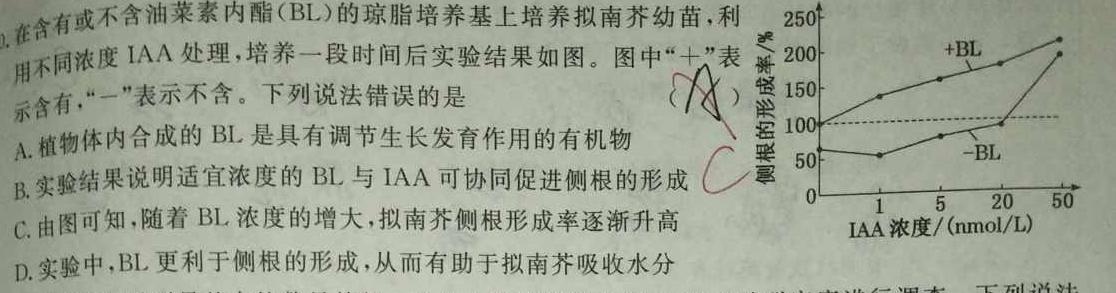 .在含有或不含油菜素内酯(BL)的琼脂培养基上培养拟南芥幼苗,利
用不同浓度 IAA 处理,培养一段时间后实验结果如图。图中“+”表
示含有,“-”表示不含。下列说法错误的是 (A)
C
A.植物体内合成的 BL 是具有调节生长发育作用的有机物
B.实验结果说明适宜浓度的 BL 与 IAA 可协同促进侧根的形成
C.由图可知,随着 BL 浓度的增大,拟南芥侧根形成率逐渐升高
D.实验中,BL 更利于侧根的形成,从而有助于拟南芥吸收水分
侧根的形成率/%
250
200
150
100
50
0
+BL
-BL
1 5 20 50
IAA 浓度/(nmol/L)